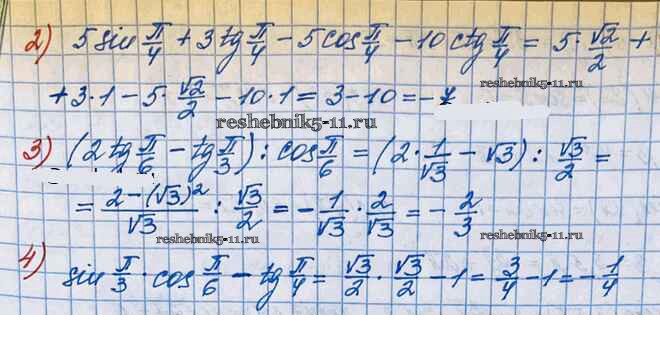 2) 5 sin π/4 + 3 tg π/4 − 5 cos π/4 − 10 ctg π/4 = 5 · √2/2 +
+ 3 · 1 − 5 · √2/2 − 10 · 1 = 3 − 10 = −7
reshebnik5-11.ru
reshebnik5-11.ru
3) (2 tg π/6 − tg π/3) : cos π/6 = (2 · 1/√3 − √3) : √3/2 =
= (2 − (√3)²)/√3 : √3/2 = − 1/√3 · 2/√3 = − 2/3
reshebnik5-11.ru
reshebnik5-11.ru
4) sin π/3 · cos π/6 − tg π/4 = √3/2 · √3/2 − 1 = 3/4 − 1 = − 1/4